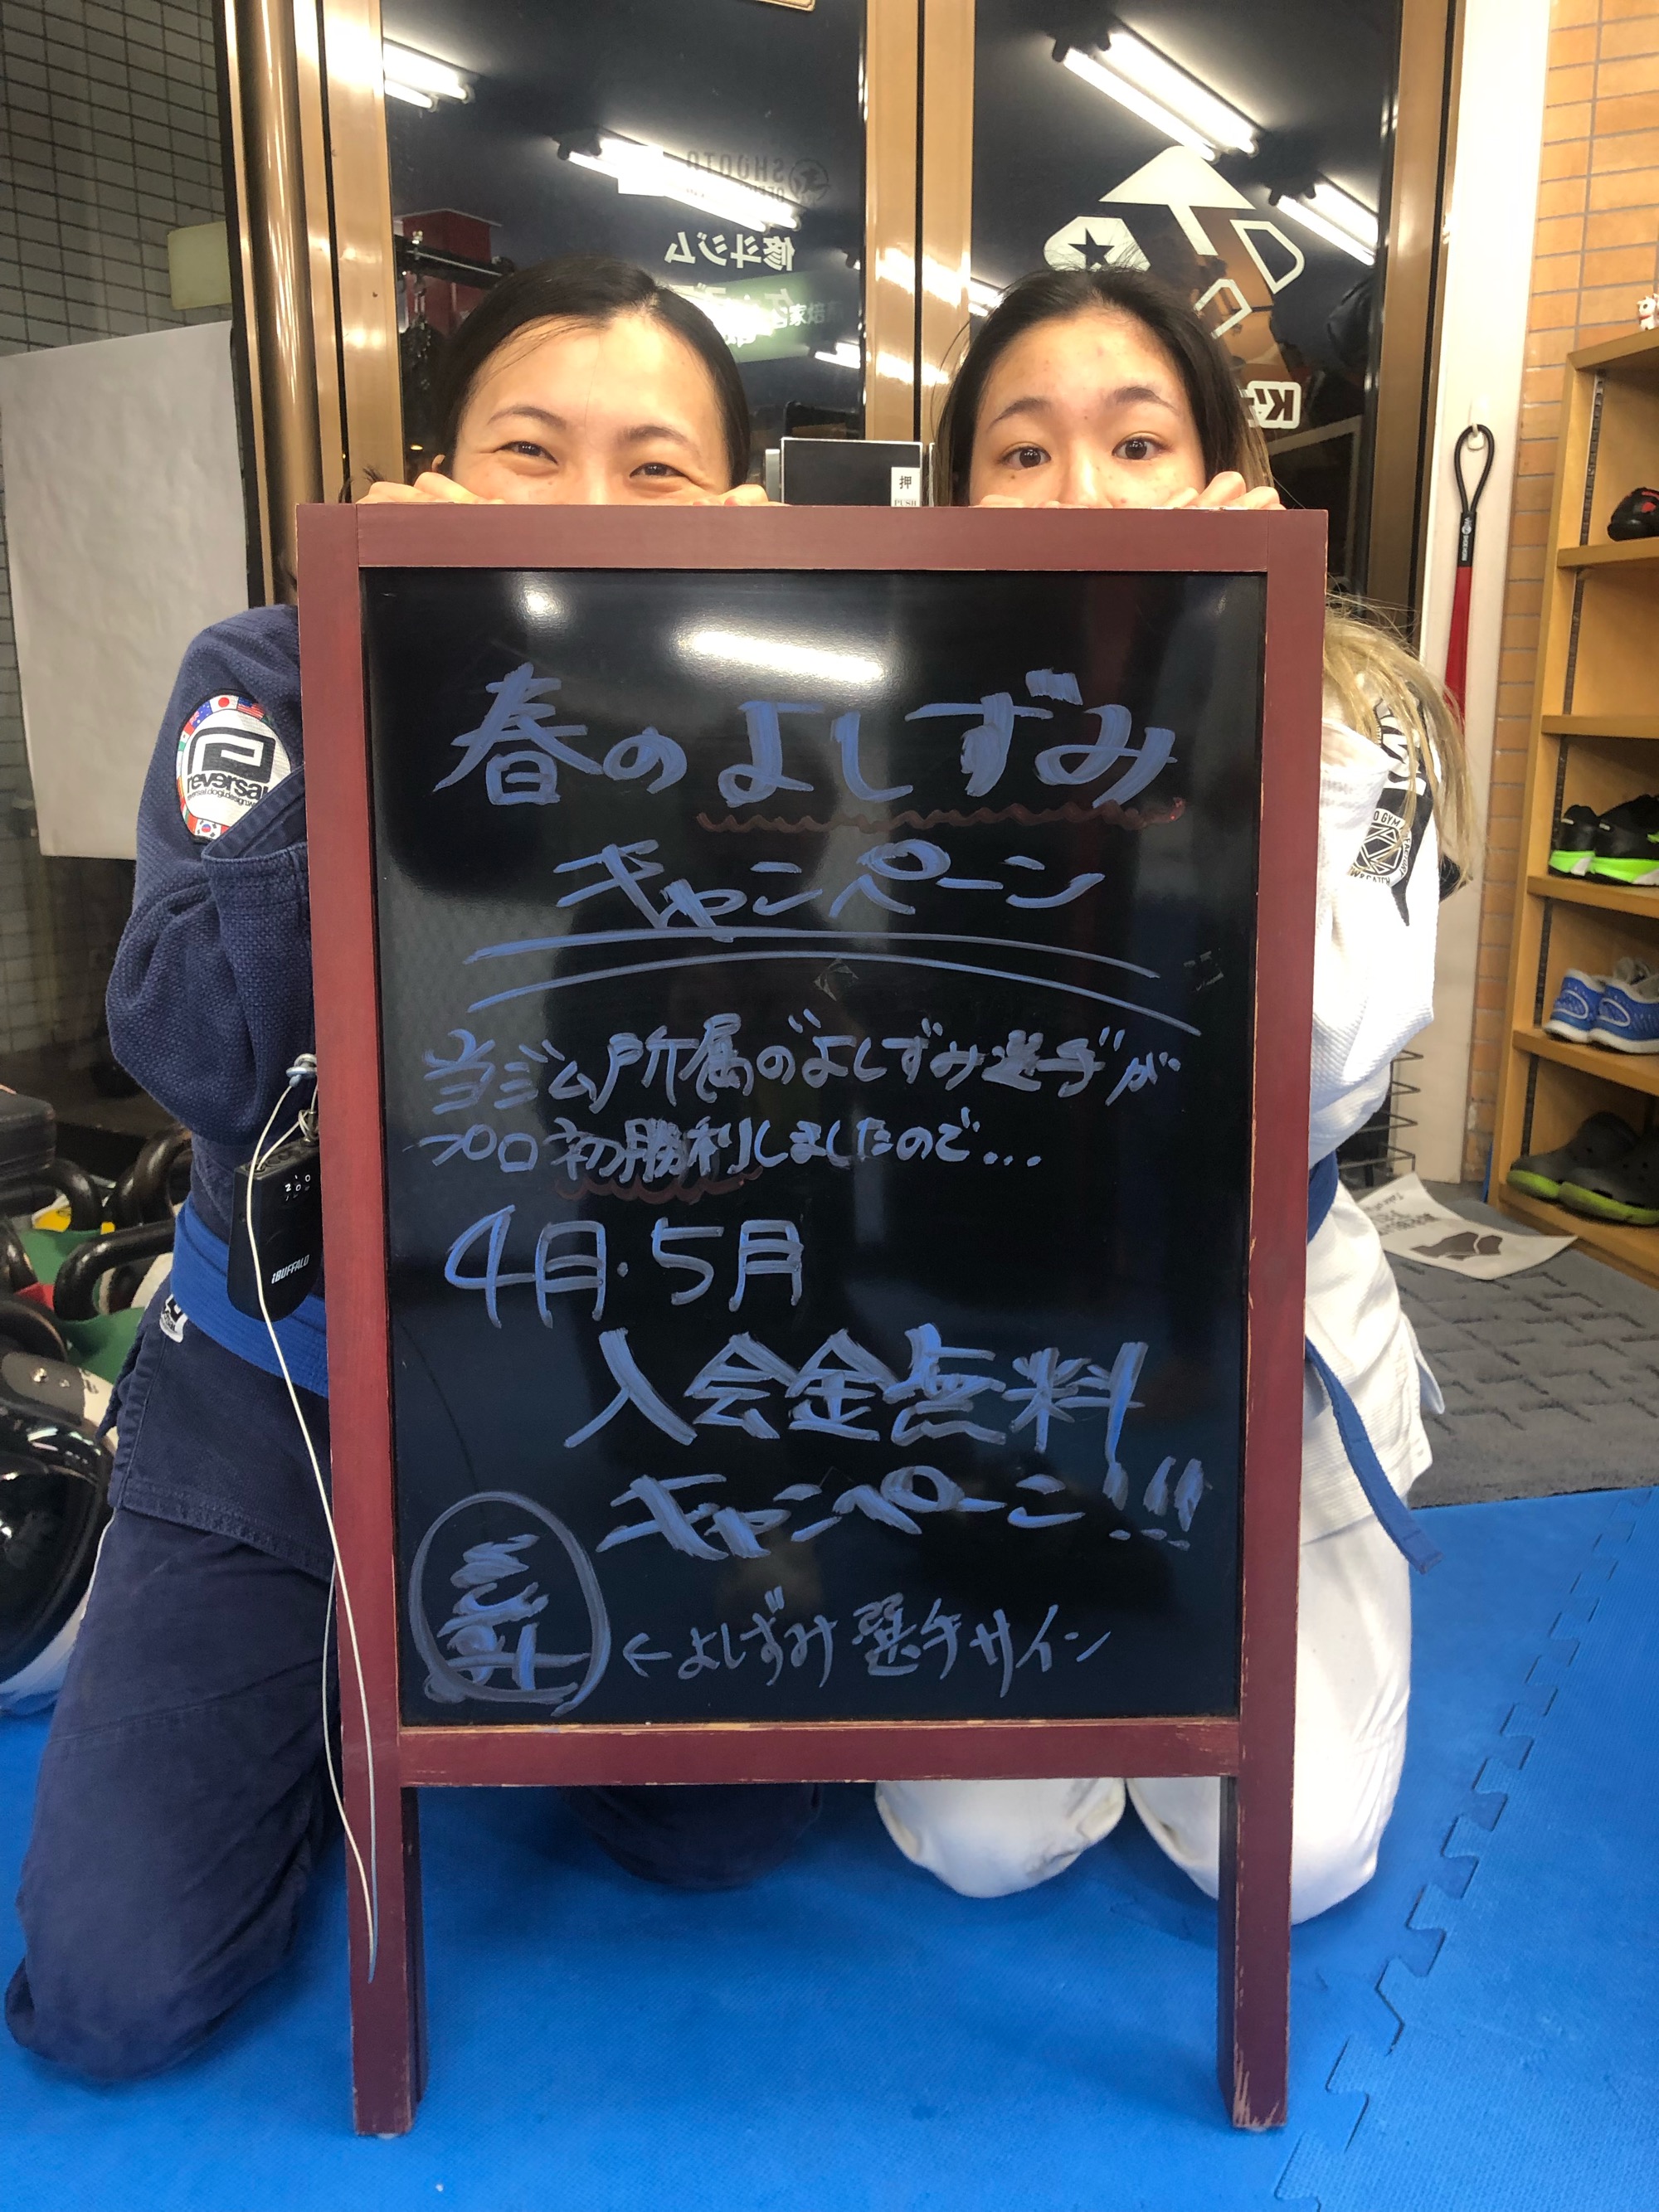 SHOOTO
修斗ジム
押
PUSH
reversal
春のよしずみ
キャンペーン
当ジム所属の"よしずみ選手"が
プロ初勝利しましたので...
4月・5月
入会金無料
キャンペーン!!!
←よしずみ選手サイン
BUFFALO